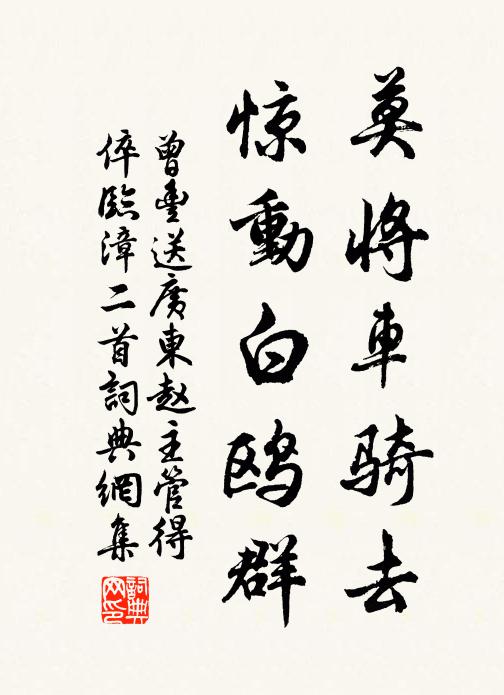 莫將車騎去
惊動白鸥群
曾豐送廣東赵主管得
倅臨漳二首詞典網集
詞典
网印